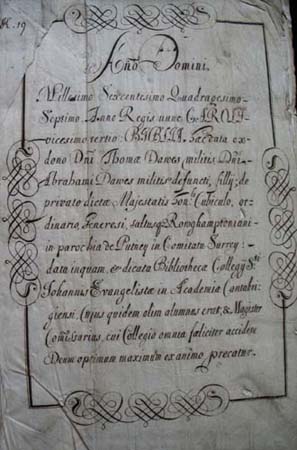 19
Año Domini.
Millesimo Sexcentesimo Quadragesimo-
Septimo. Anno Regis nunc CAROLI
vicesimo tertio: BIBLIA. Sac data ex
dono Dñi Thomæ Dawes militis: Dñi.
Abrahami Dawes militis defuncti, filij: de
privato dictæ Majestatis Cubiculo, or-
dinario, saltusq Ronghamptoniani
in parochia de Putney in Comitatu Surrey:
data inquam, & dicata Bibliothecæ Collegij
Johannis Evangelistæ in Academia Contabri-
giensi. Cujus quidem olim alumnus erat, & Magister
Comissarius, cui Collegio omnia fæliciter accidere
Deum optimum maximum ex animo precatur.